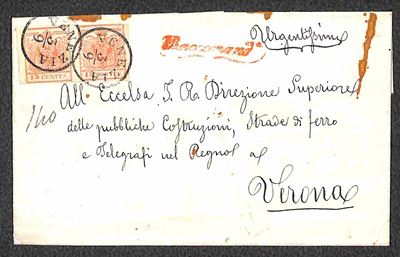 VENEZIA
9/5
VENEZIA
9/5
15 CENTES
Raccomand
Urgentissima
All' Eccelsa I. R. Direzione Superiore
delle pubbliche Costruzioni, Strade di ferro
e Telegrafi nel Regno a
Verona